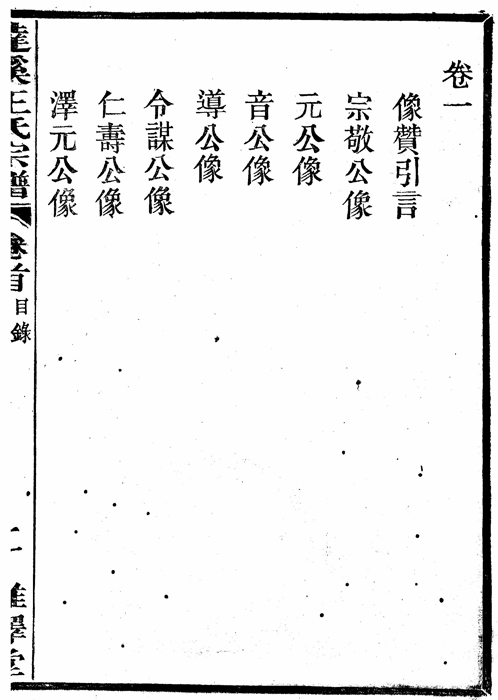 卷一
像贊引言
宗敬公像
元公像
音公像
導公像
令謀公像
仁壽公像
澤元公像
達溪王氏宗譜
卷首
目錄